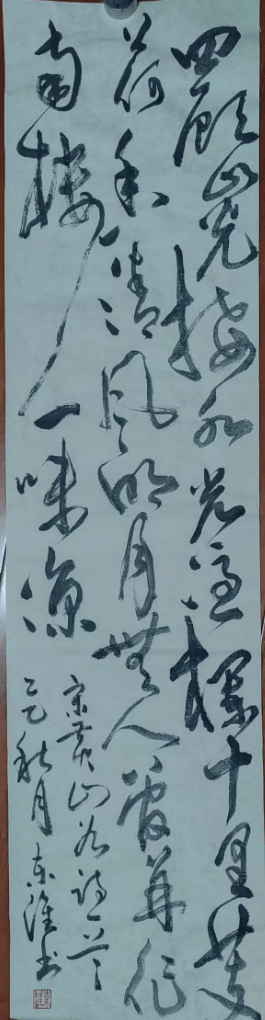 四顾山光接水光凭栏十里芰
荷香清风明月无人管并作
南楼一味凉
宋黄山谷诗一首
乙巳秋月东淮书